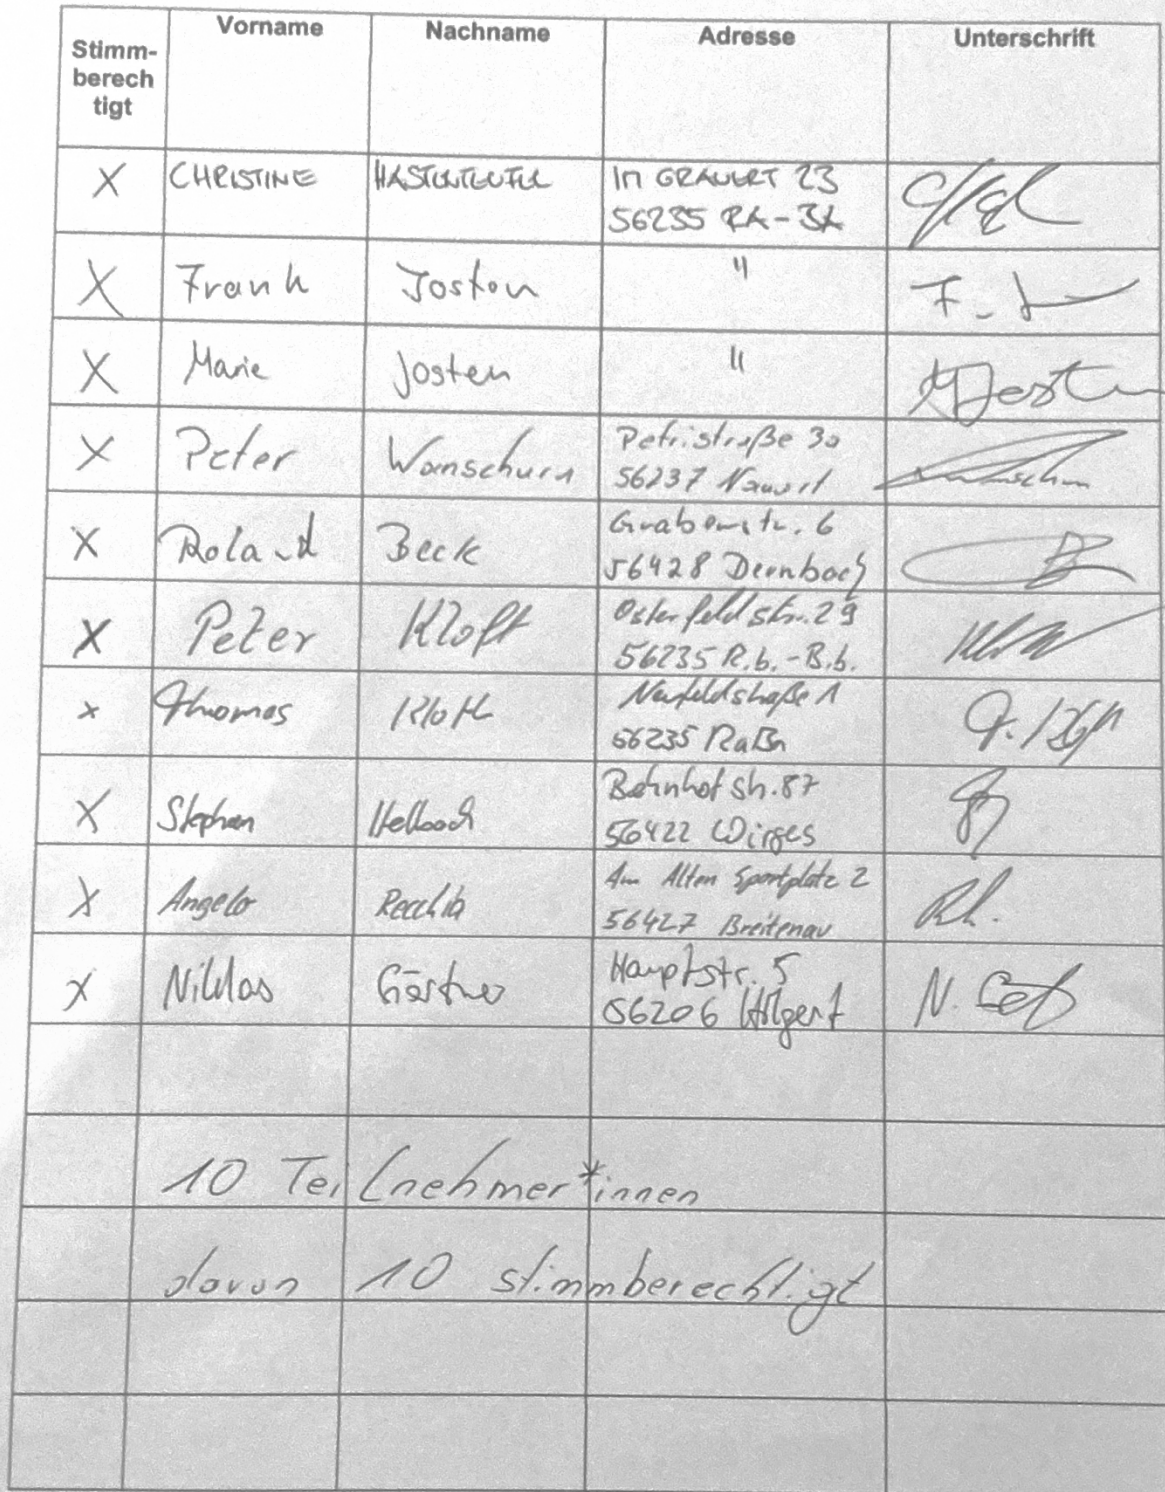 Stimm-
berech
tigt
Vorname Nachname Adresse Unterschrift
X CHRISTINE HASTENTEUFEL IM GRAUERT 23
56235 RA-BA
X Frank Josten "
X Marie Josten " MJosten
X Peter Wanschura Petristraße 30
56237 Nauort
X Roland Beck Grabenstr. 6
56428 Dernbach
X Peter Kloft Osterfeldstr. 29
56235 R.b.-B.b.
x Thomas Kloft Neufeldstraße 1
56235 RaBa
X Stephan Helbach Bahnhofstr. 87
56422 Wirges
X Angelo Recchia Am Alten Sportplatz 2
56427 Breitenau
X Niklas Gärtner Hauptstr. 5
56206 Hilgert
10 Teilnehmer*innen
davon 10 stimmberechtigt